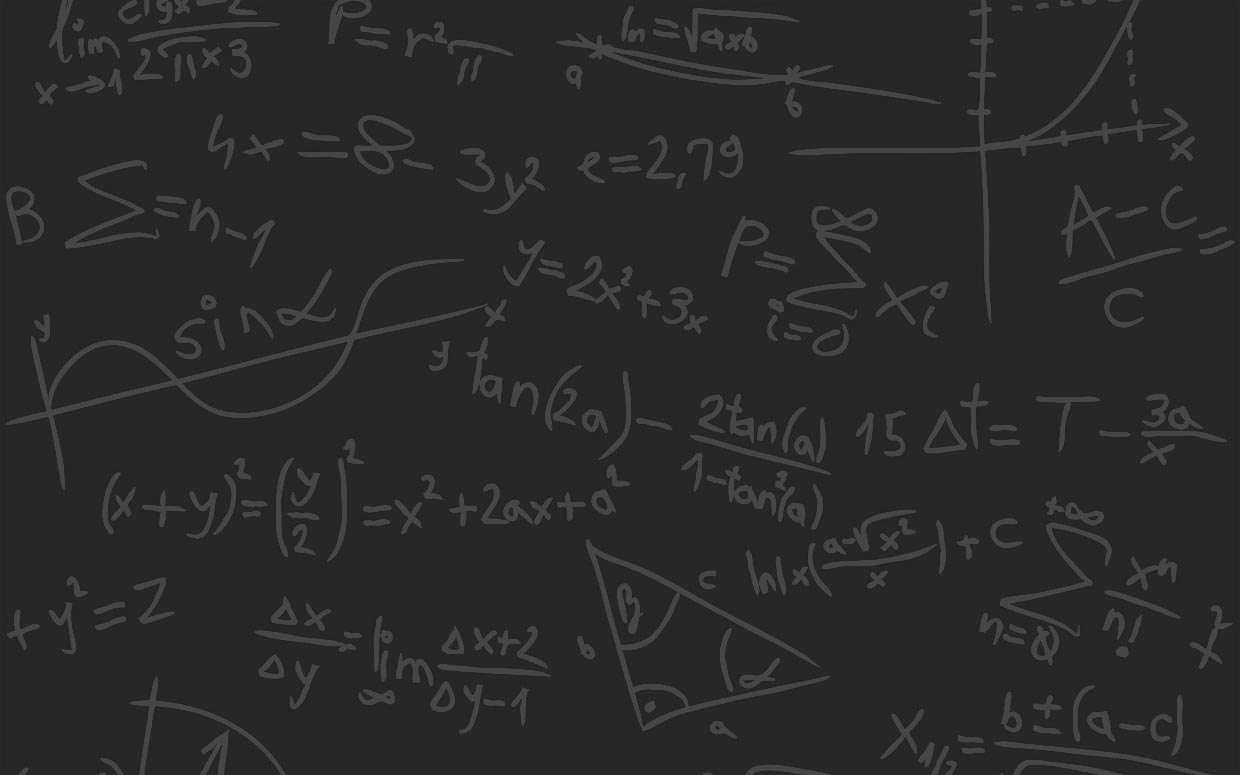 lim x→1 ctgx-2 / 2√11×3
P=r²/11
ln=√a×b
a
b
x
4x=8-3y²
e=2,79
B∑=n-1
A-C/C=
y=2x²+3x
P=∑ i=0 ∞ xᵢⁱ
sinα
y
x
y
tan(2a)-2tan(a)/1-tan²(a)
15Δt=T-3a/x
(x+y)²=(y/2)²=x²+2ax+a²
ln|x(a-√x²/x)+C
∑ n=0 +∞ xⁿ/n!
+y²=Z
Δx/Δy=lim ∞ Δx+2/Δy-1
c
β
b
α
a
x₁/₂=b±(a-c)